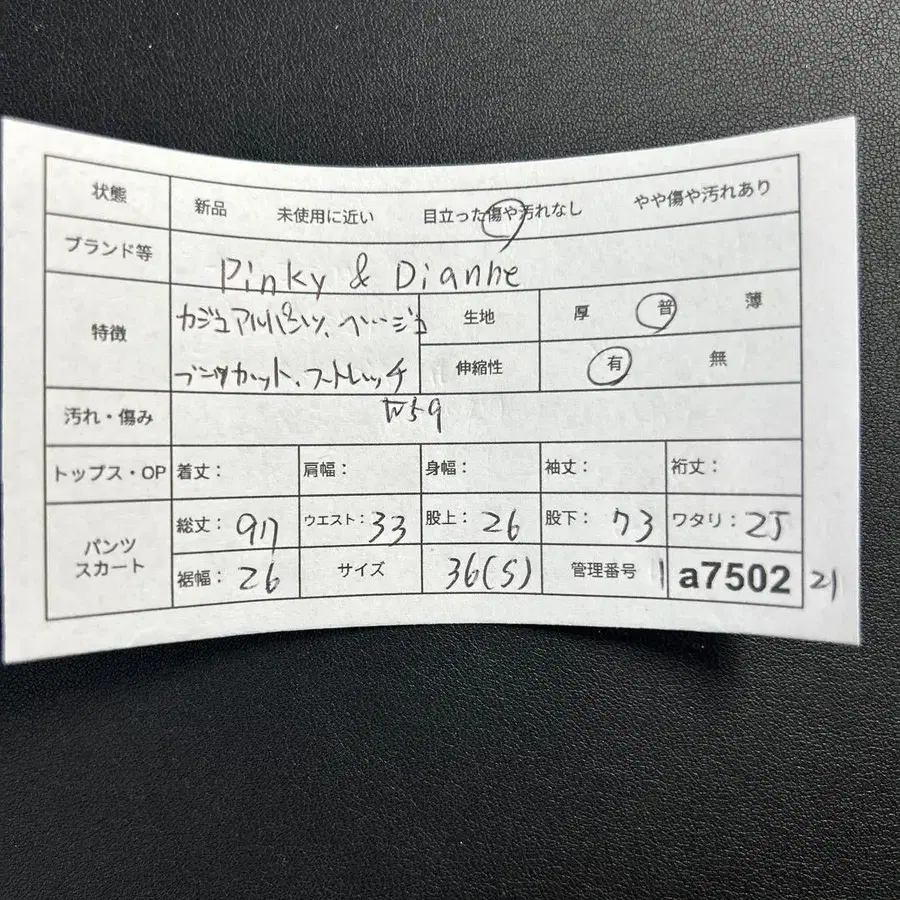 状態 新品 未使用に近い 目立った傷や汚れなし やや傷や汚れあり
ブランド等 Pinky & Dianne
特徴 カジュアルパンツ、ベージュ
ブーツカット、ストレッチ
生地 厚 普 薄
伸縮性 有 無
汚れ・傷み
トップス・OP 着丈: 肩幅: 身幅: 袖丈: 裄丈:
パンツ スカート
総丈: 97 ウエスト: 33 股上: 26 股下: 73 ワタリ: 25
裾幅: 26 サイズ 36(S) 管理番号 1 a7502 21